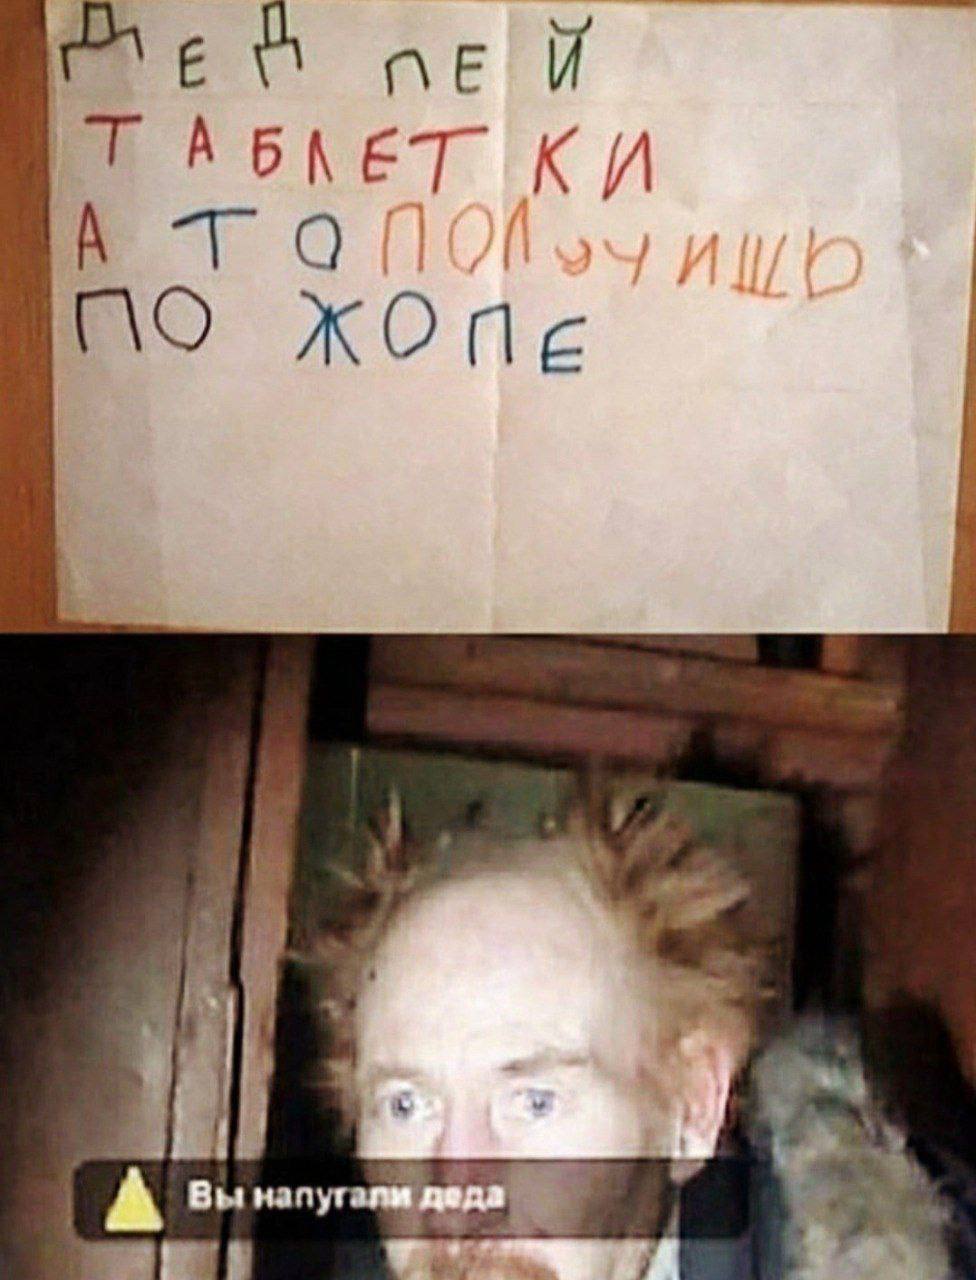 ДЕД ПЕЙ
ТАБЛЕТКИ
А ТО ПОЛУЧИШЬ
ПО ЖОПЕ
Вы напугали деда